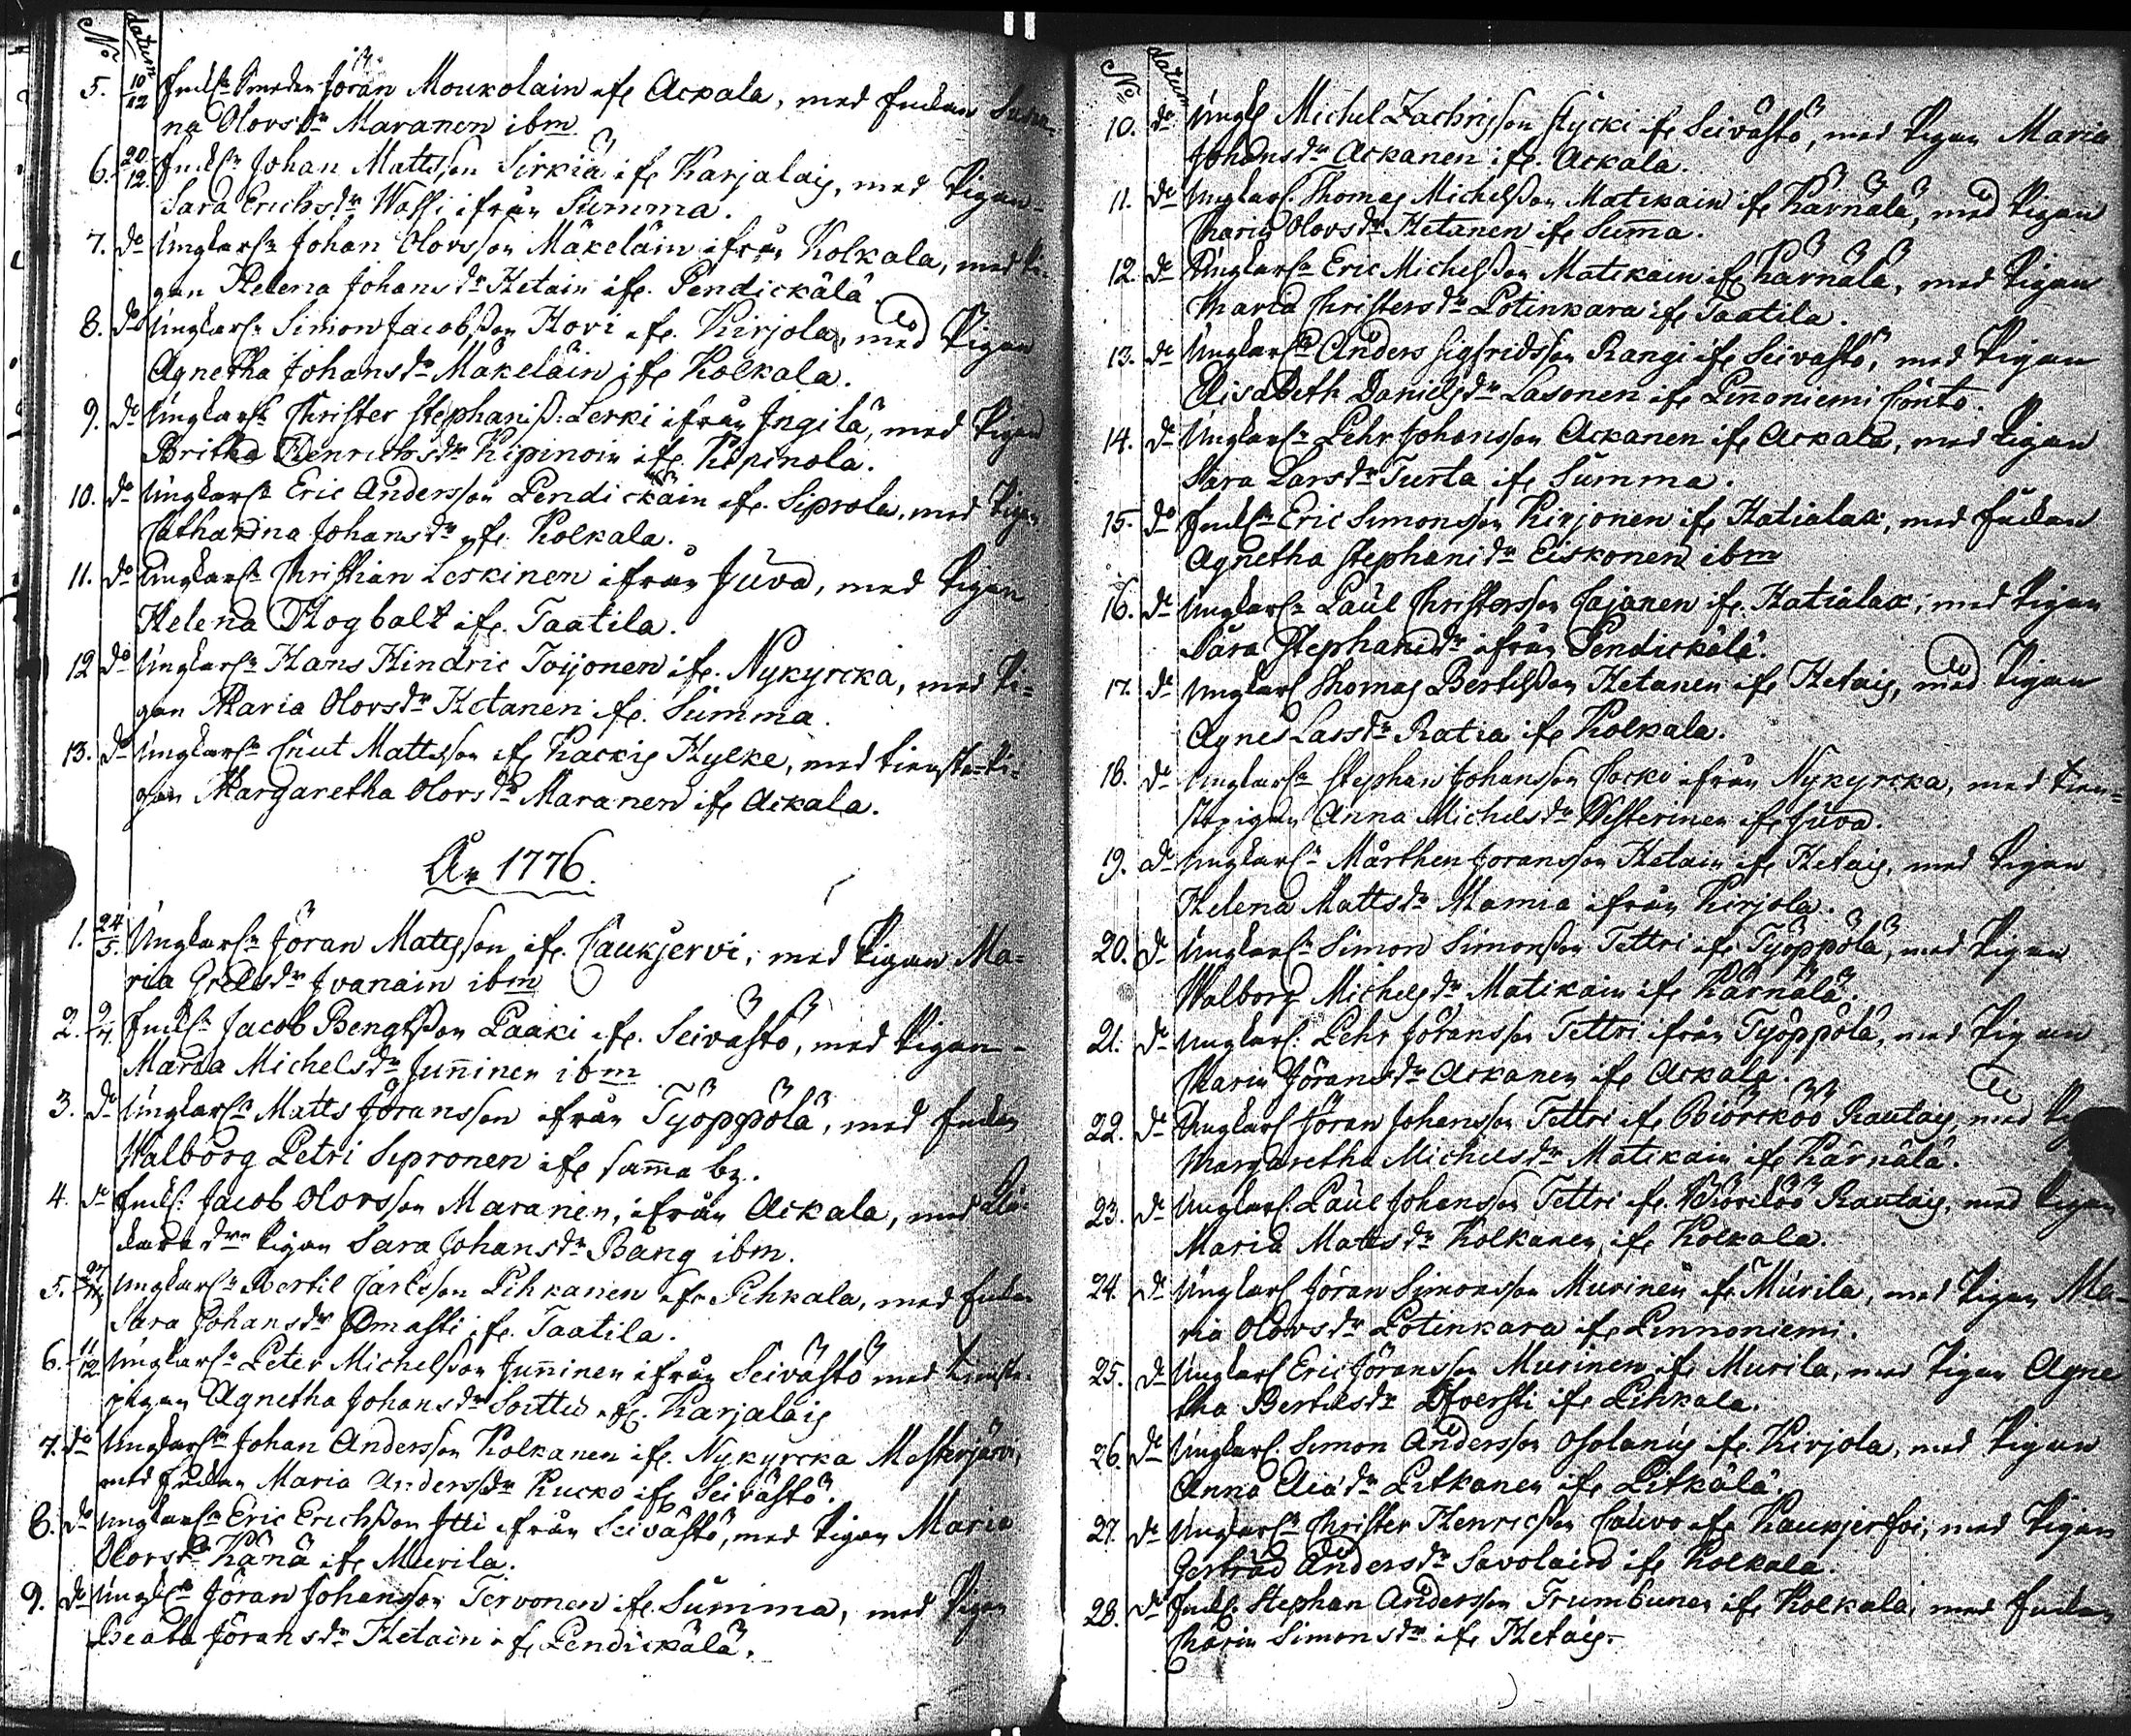 No datum
5. 10/12 Enkl:n Smeden Jöran Moukolain ifr Ackala, med Enkan Susa-
na Olovsdr Maranen ibm
6. 20/12. Enkl:n Johan Mattsson Sirkiä ifr Karjalais, med Pigan
Sara Erichsdr Wassi ifrån Summa.
7. do Ungkarln Johan Olovsson Mäkeläin ifrån Kolkala, med Pi-
gan Helena Johansdr Hetain ifr. Pendickälä
8. do Ungkarln Simon Jacobsson Hovi ifr. Kirjola, med Pigan
Agnetha Johansdr Mäkeläin ifr Kolkala.
9. do Ungkarln Christer Stephaniss: Lerki ifrån Ingilä, med Pigan
Britha Henrichsdr Kipinoin ifr. Kipinola.
10. do Ungkarln Eric Andersson Pendickäin ifr. Siprola, med Pigan
Catharina Johansdr ifr. Kolkala.
11. do Ungkarln Christian Leskinen ifrån Juva, med Pigan
Helena Hogbalt ifr. Taatila.
12 do Ungkarln Hans Hindric Toijonen ifr. Nykyrcka, med Pi=
gan Maria Olovsdr Hetanen ifr. Summa.
13. do Ungkarln Cnut Mattsson ifr Kackis Hylke, med tienste-Pi=
gan Margaretha Olovsdr Maranen ifr Ackala.
År 1776.
1. 24/5. Ungkarln Jöran Matsson ifr. Caukjervi, med Pigan Ma=
ria Grelsdr Ivanain ibm
2. Enkl:n Jacob Bengtsson Paaki ifr. Seivästö, med Pigan
Maria Michelsdr Junninen ibm
3. do Ungkarln Matts Joransson ifrån Työppölä, med Enkan
Walborg Petri Sipronen ifr samma by.
4. do Enkl: Jacob Olovsson Maranen, ifrån Ackala, med
dr Pigan Sara Johansdr Bång ibm.
5. Ungkarln Bertil Carlsson Pihkanen ifr Pihkala, med Enkan
Sara Johansdr ifr. Taatila.
6. 11/12. Ungkarln Peter Michelsson Junninen ifrån Seivästö med tienste-
pigan Agnetha Johansdr Soittu ifr. Karjalais
7. do Ungkarln Johan Andersson Kolkanen ifr. Nykyrcka Mesterjärvi,
med Enkan Maria Andersdr Kucko ifr Seivästö.
8. do Ungkarln Eric Erichsson Itti ifrån Seivästö, med Pigan Maria
Olovsdr Känä ifr Murila.
9. do Ungk:n Jöran Johansson Tervonen ifr. Summa, med Pigan
Beata Jöransdr Hetain ifr Pendickälä.
No datum
10. do Ungk: Michel Zachrisson Stycki ifr Seivästö, med Pigan Maria
Johansdr Ackanen ifr. Ackala.
11. do Ungkarl. Thomas Michelsson Matikain ifr Kärnälä, med Pigan
Maria Olovsdr Hetanen ifr Summa.
12. do Ungkarln Eric Michelsson Matikain ifr Kärnälä, med Pigan
Maria Christersdr Potinkara ifr Taatila.
13. do Ungkarln Anders Sigfridsson Rangi ifr Seivästö, med Pigan
Elisabeth Danielsdr Lasonen ifr Pinnoniemi Conto.
14. do Ungkarln Pehr Johansson Ackanen ifr Ackala, med Pigan
Sara Larsdr Turta ifr Summa.
15. do Enkl:n Eric Simonsson Kirjonen ifr Hatialax, med Enkan
Agnetha Stephanidr Eiskonen ibm
16. do Ungkarln Paul Christersson Cajanen ifr. Hatialax, med Pigan
Sara Stephanidr ifrån Pendickälä.
17. do Ungkarl Thomas Bertilsson Hetanen ifr Hetais, med Pigan
Agnes Larsdr Ratia ifr Kolkala.
18. do Ungkarln Stephan Johansson Cocko ifrån Nykyrcka, med tien=
stepigan Anna Michelsdr Westerinen ifr Juva.
19. do Ungkarln Mårthen Joransson Hetain ifr Hetais, med Pigan
Helena Mattsdr Mamia ifrån Kirjola.
20. do Ungkarln Simon Simonsson Tettri ifr Työppölä, med Pigan
Walborg Michelsdr Matikain ifr Kärnälä.
21. do Ungkarl: Pehr Jöransson Tettri ifrån Työppölä, med Pigan
Maria Jöransdr Ackanen ifr Ackala.
22. do Ungkarl Jöran Johansson Tettri ifr Biörcköö Rautais, med
Margaretha Michelsdr Matikain ifr Kärnälä.
23. do Ungkarl. Paul Johansson Tettri ifr. Biörcköö Rautais, med Pigan
Maria Mattsdr Kolkanen, ifr Kolkala.
24. do Ungkarl Jöran Simonsson Murinen ifr Murila, med Pigan Ma-
ria Olovsdr Potinkara ifr Pinnoniemi.
25. do Ungkarl Eric Jöransson Murinen ifr Murila, med Pigan Agne
tha Bertilsdr ifr Pihkala.
26. do Ungkarl. Simon Andersson Osolanus ifr Kirjola, med Pigan
Anna dr Pitkanen ifr Pitkälä.
27. do Ungkarln Christer Henricsson Cauvo ifr Kaukjerfvi, med Pigan
Gertrud Andersdr Savolain ifr Kolkala.
28. do Enkl. Stephan Andersson Trumbunen ifr Kolkala, med Enkan
Maria Simonsdr ifr Hetais.